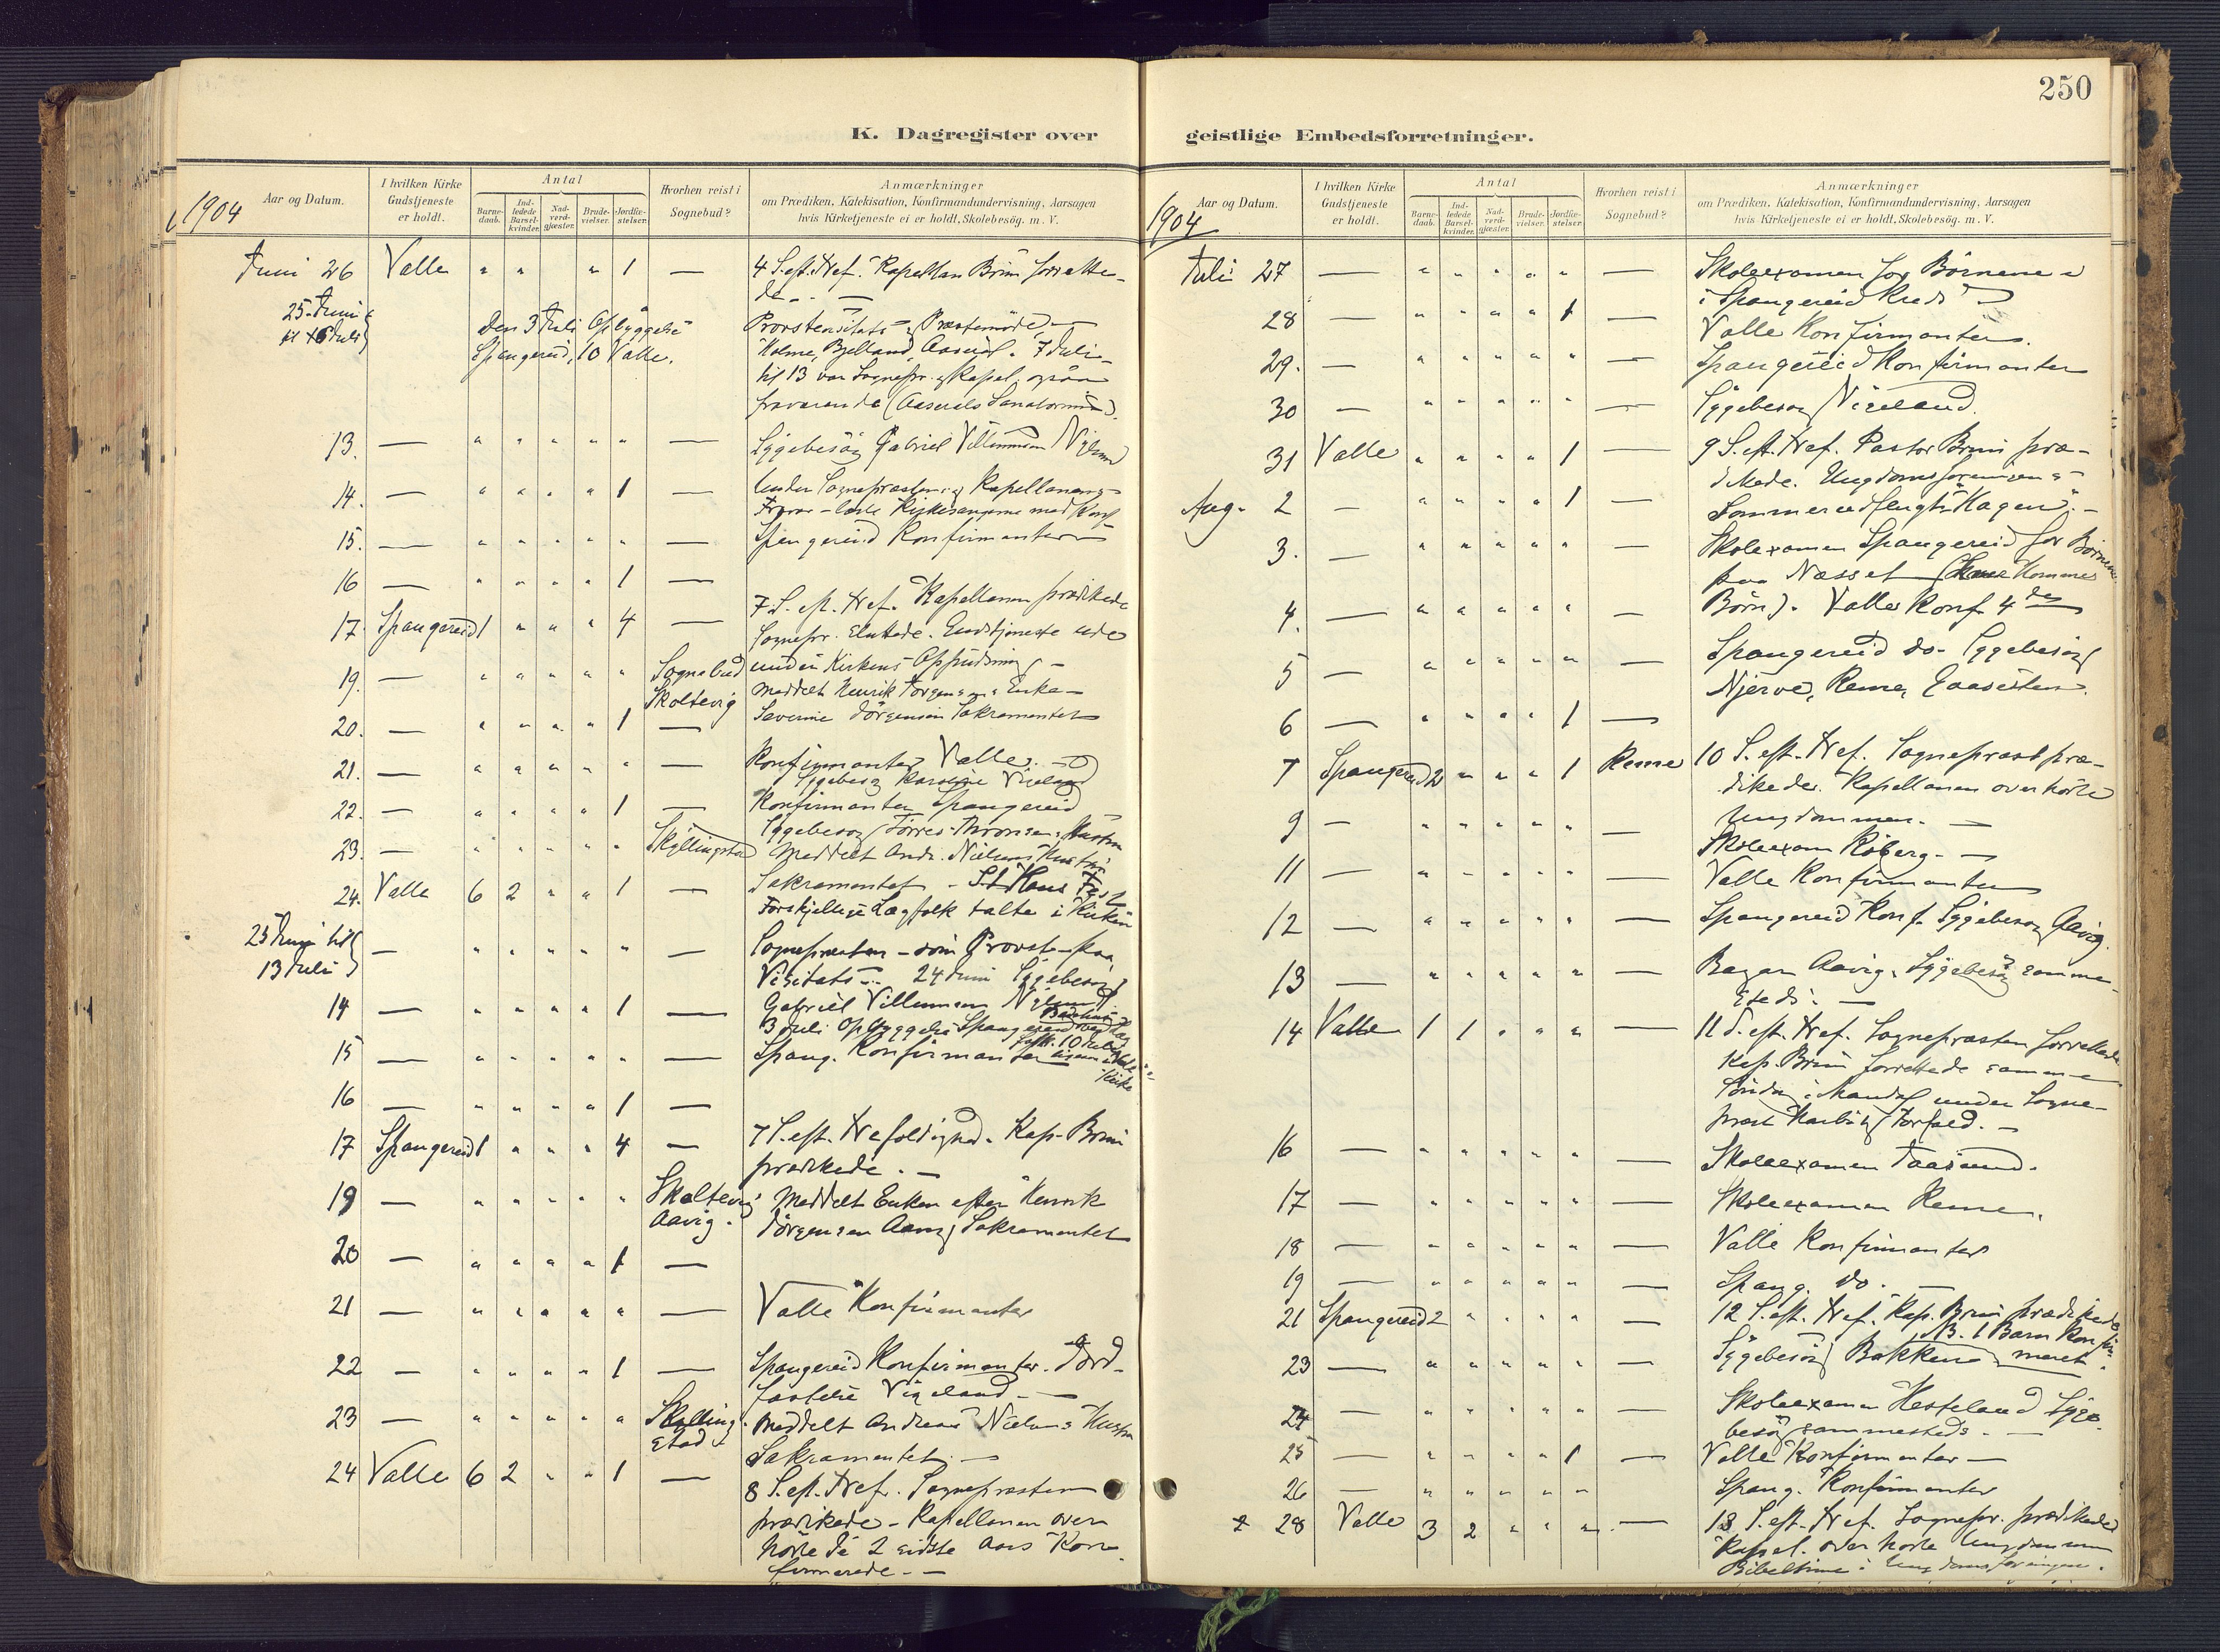 250
K. Dagregister over
geistlige Embedsforretninger.
1904
Aar og Datum.
I hvilken Kirke Gudstjeneste er holdt.
Antal
Barnedaab.
Indledede Barselkvinder.
Nadverdgjæster.
Brudevielser.
Jordfæstelser.
Hvorhen reist i Sognebud?
Anmærkninger
om Prædiken, Katekisation, Konfirmandundervisning, Aarsagen
hvis Kirketjeneste ei er holdt, Skolebesög. m. V.
Juni 26 Valle " " " 1 — 4 S. eft. Tref. Kapellan Brun forrette-
de. —
25 Juni
til 16 Juli
Den 3 Juli Opbyggelse
Spangereid, 10 Valle.
Provstevisitats Præstemöde
Holme, Bjelland, Aaseral. 7 Juli
til 13 var Sognepr. og Kapel. ogsaa
fraværende (Aaserals Sanatorium).
13. — " " " " " — Sygebesög Gabriel Villumsen
14. — " " " " 1 — Under Sognepræstens og Kapellanens
Fravær læste Kirkesangerne med Konf.
15. — " " " " " — Spangereid Konfirmanter
16 — " " " " 1 —
17. Spangereid 1 " " " 4 — 7 S. eft. Tref. Kapellanen prædikede
Sognepr. sluttede. Gudstjeneste ude
under Kirkens Opпudsning —
19. — " " " " " Sognebud Skoltevig
Meddelt Henrik Jörgensens Enke
Severine Jörgensen Sakramentet
20. — " " " " 1 —
21. — " " " " " Konfirmanter Valle. —
Sygebesög
22. — " " " " 1 — Konfirmanter Spangereid
Sygebesög Hustru
23. — " " " " " Skjellingstad Meddelt Andr. Nielsens Hustru
24. Valle 6 2 " " 1 — Sakramentet. — St Hans Fest
Forskjellige Lægfolk talte i Kirken
25 Juni til
13 Juli
— " " " " " — Sognepræsten – som Provst – paa
Visitats — 24 Juni Sygebesög
Gabriel Villumsen
3 Juli Opbyggelse Spangereid
14 — " " " " 1 —
15 — " " " " " — Spang. Konfirmanter
16 — " " " " 1 —
17 Spangereid 1 " " " 4 — 7 S. eft. Trefoldighed. Kap. Brun
prædikede. —
19 — " " " " " Skoltevig Aavig.
Meddelt Enken efter Henrik
Jörgensen Aavig Sakramentet
20 — " " " " 1 —
21 — " " " " " — Valle Konfirmanter
22 — " " " " 1 — Spangereid Konfirmanter. Jord-
fæstelse Vigeland. —
23 — " " " " " Skjelling-
stad
Meddelt Andreas Nielsens Hustru
Sakramentet. —
24 Valle 6 2 " " 1 — 8 S. eft. Tref. Sognepræsten
prædikede – Kapellanen over-
hörte de 2 sidste Aars Kon-
firmerede. —
1904
Aar og Datum.
I hvilken Kirke Gudstjeneste er holdt.
Antal
Barnedaab.
Indledede Barselkvinder.
Nadverdgjæster.
Brudevielser.
Jordfæstelser.
Hvorhen reist i Sognebud?
Anmærkninger
om Prædiken, Katekisation, Konfirmandundervisning, Aarsagen
hvis Kirketjeneste ei er holdt, Skolebesög. m. V.
Juli 27 — " " " " " — Skoleexamen for Börnene
i Spangereid Kreds
28 — " " " " 1 — Valle Konfirmanter.
29. — " " " " " — Spangereid Konfirmanter
30 — " " " " " — Sygebesög Vigeland.
31 Valle " " " " 1 — 9 S. eft. Tref. Pastor Brun præ-
dikede. Ungdomsforeningens
Aug. 2 — " " " " 1 — Sommerudflugt "Hagen". —
3. — " " " " " — Skolexamen Spangereid for Börnene
paa Næsset
4. — " " " " " — Börn). Valle Konf. 4de
5 — " " " " " — Spangereid do. Sygebesög
Njerve, Reme,
6 — " " " " 1 —
7 Spangereid 2 " " " 1 Reme 10 S. eft. Tref. Sognepræst præ-
dikede. Kapellanen overhörte
Ungdommen. —
9 — " " " " " — Skoleexam Röberg. —
11 — " " " " " — Valle Konfirmanter
12 — " " " " " — Spangereid Konf. Sygebesög Aavig.
13 — " " " " " — Bazar Aavig. Sygebesög samme-
steds. —
14 Valle 1 1 " " " — 11 S. eft. Tref. Sognepræsten forrettede
Kap. Brun forrettede samme
Söndag i Mandal under Sogne-
præst Forfald. —
16 — " " " " " — Skoleexamen Taasund.
17 — " " " " " — Skoleexamen Reme.
18 — " " " " " — Valle Konfirmanter
19 — " " " " " — Spang. do. —
21 Spangereid 2 " " " " — 12 S. eft. Tref. Kap. Brun prædikede
NB. 1 Barn konfir-
meret.
23 — " " " " " — Sygebesög Bakkene
24 — " " " " " — Skoleexamen Hesteland Syge-
besög sammesteds. —
25 — " " " " 1 — Valle Konfirmanter —
26 — " " " " " Spang. Konfirmanter
28 Valle 3 2 " " " — 13 S. eft. Tref. Sognepr. prædikede
Kapel. overhörte Ungdommen
Bibeltime i Ungdomsforeningen.